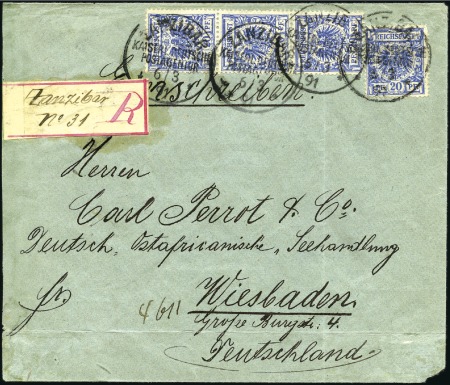 ZANZIBAR
KAISERL. DEUTSCHE
POSTAGENTUR
6/3
91
REICHSPOST
20
Einschreiben.
Zanzibar
No 31
R
Herren
Carl Perrot & Co.
Deutsch-Ostafricanische Seehandlung
fr.
Wiesbaden
4611
Große Burgstr. 4.
Deutschland